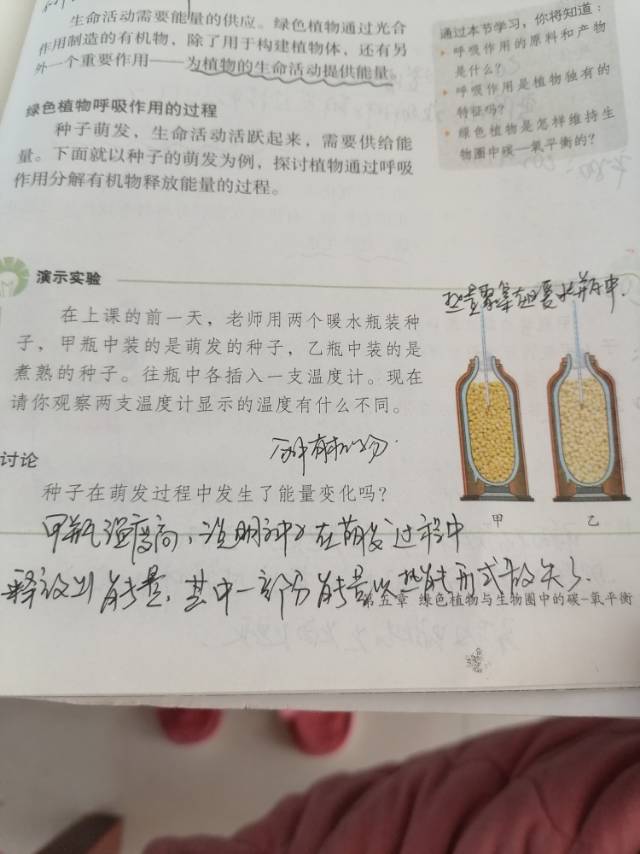 生命活动需要能量的供应。绿色植物通过光合
作用制造的有机物，除了用于构建植物体，还有另
外一个重要作用——为植物的生命活动提供能量。
通过本节学习，你将知道：
• 呼吸作用的原料和产物
是什么？
• 呼吸作用是植物独有的
特征吗？
• 绿色植物是怎样维持生
物圈中碳—氧平衡的？
绿色植物呼吸作用的过程
种子萌发，生命活动活跃起来，需要供给能
量。下面就以种子的萌发为例，探讨植物通过呼吸
作用分解有机物释放能量的过程。
演示实验
热量聚集在暖水瓶中.
在上课的前一天，老师用两个暖水瓶装种
子，甲瓶中装的是萌发的种子，乙瓶中装的是
煮熟的种子。往瓶中各插入一支温度计。现在
请你观察两支温度计显示的温度有什么不同。
有机物.
讨论
种子在萌发过程中发生了能量变化吗？
甲 乙
甲瓶温度高，说明种子在萌发过程中
释放出能量，其中一部分能量以热能形式散失了.
第五章 绿色植物与生物圈中的碳-氧平衡